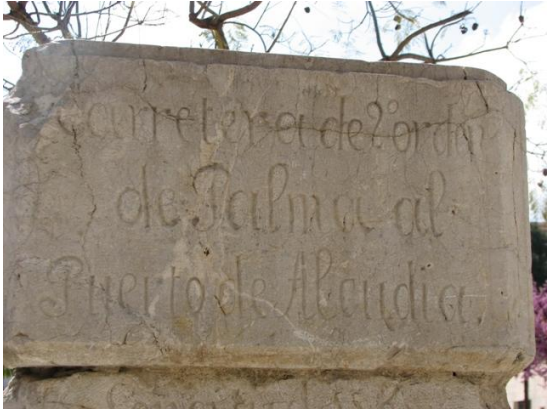 Carretera de 2º orden
de Palma al
Puerto de Alcudia.